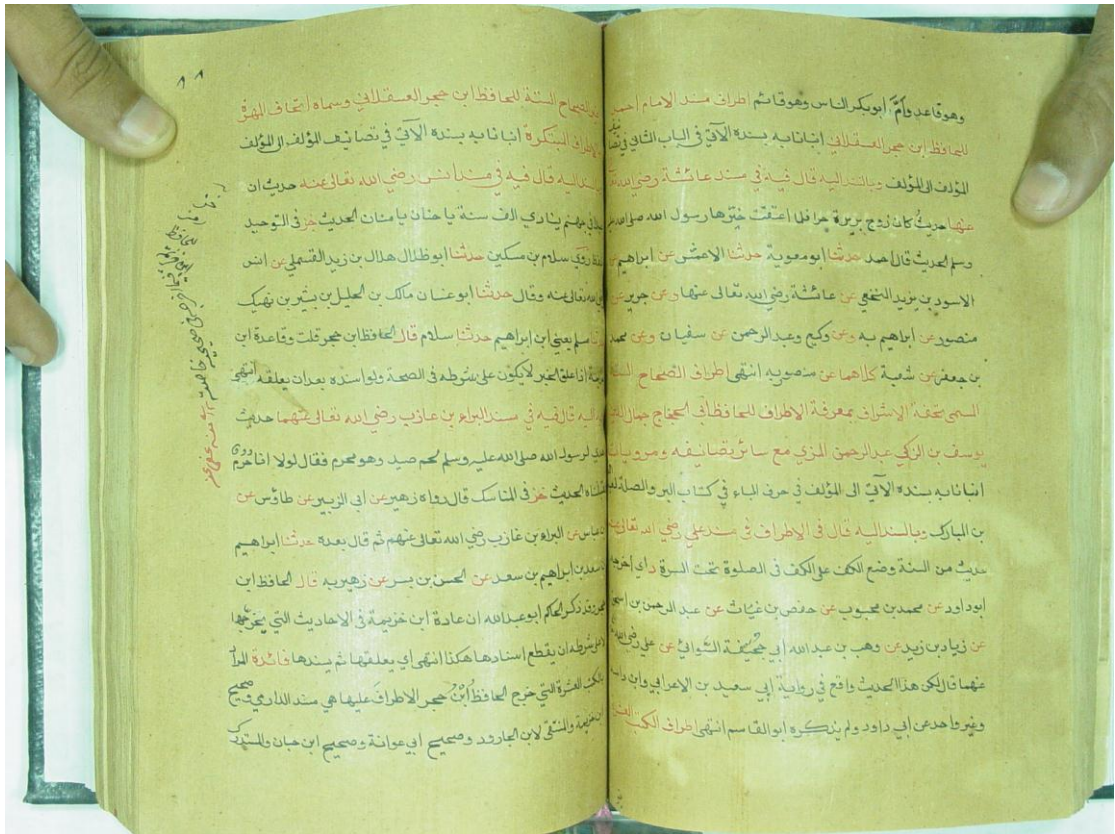 وهو قاعد وأمَّ أبو بكر الناس وهو قائم اطراف مسند الامام احمد
للحافظ ابن حجر العسقلاني انبانا به بسنده الآتي في الباب الثاني في
المؤلف الى المؤلف وبالسند اليه قال فيه في مسند عائشة رضي الله
عنها حديث كان زوج بريرة حرا فلما اعتقت خيّرها رسول الله صلى الله
وسلم الحديث قال احمد حدثنا ابو معوية حدثنا الاعمش عن ابراهيم عن
الاسود بن يزيد النخعي عن عائشة رضي الله تعالى عنها وعن جرير عن
منصور عن ابراهيم به وعن وكيع وعبد الرحمن عن سفيان وعن محمد
بن جعفر عن شعبة كلاهما عن منصور به انتهى اطراف الصحاح الستة
المسمى تحفة الاشراف بمعرفة الاطراف للحافظ ابي الحجاج جمال
يوسف بن الزكي عبد الرحمن المزي مع سائر تصانيفه ومرويات
انبانا به بسنده الآتي الى المؤلف في حرف الباء في كتاب البر والصلة
بن المبارك وبالسند اليه قال في الاطراف في مسند علي رضي الله تعالى عنه
حديث من السنة وضع الكف على الكف في الصلوة تحت السرة
ابو داود عن محمد بن محبوب عن حفص بن غياث عن عبد الرحمن بن
عن زياد بن زيد عن وهب بن عبد الله ابي جحيفة السُّوائي عن علي رضي الله
عنهما قال لكن هذا الحديث واقع في رواية ابي سعيد بن الاعرابي وابن داسه
وغير واحد عن ابي داود ولم يذكره ابو القاسم انتهى اطراف الكتب
٨٨
الصحاح الستة للحافظ ابن حجر العسقلاني وسماه اتحاف المهرة
باطراف المبتكرة انبانا به بسنده الآتي في تصانيف المؤلف الى المؤلف
وبالسند اليه قال فيه في مسند انس رضي الله تعالى عنه حديث ان
في جهنم ينادي الف سنة يا حنان يا منان الحديث خز في التوحيد
روى سلام بن مسكين حدثنا ابو ظلال هلال بن زيد القسملي عن انس
الله تعالى عنه وقال حدثنا ابو غسان مالك بن الخليل بن بشير بن نهيك
سلم يعني ابن ابراهيم حدثنا سلام قال الحافظ ابن حجر قلت وقاعدة ابن
خزيمة اذا علق الخبر لا يكون على شرطه في الصحة ولو اسنده بعد ان يعلقه انتهى
اليه قال فيه في مسند البراء بن عازب رضي الله تعالى عنهما حديث
لرسول الله صلى الله عليه وسلم لحم صيد وهو محرم فقال لولا انا حرم
الحديث خز في المناسك قال رواه زهير عن ابي الزبير عن طاؤس عن
ابن عباس عن البراء بن عازب رضي الله تعالى عنهم ثم قال بعده حدثنا ابراهيم
سعد بن ابراهيم بن سعد عن الحسن بن بسر عن زهير به قال الحافظ ابن
حجر وقد ذكر الحاكم ابو عبد الله ان عادة ابن خزيمة في الاحاديث التي يخرجها
على شرطه ان يقطع اسنادها هكذا انتهى اي يعلقها ثم يسندها فائدة المراد
بالكتب العشرة التي خرج الحافظ ابنُ حجر الاطراف عليها هي مسند الدارمي وصحيح
ابن خزيمة والمنتقى لابن الجارود وصحيح ابي عوانة وصحيح ابن حبان والمستدرك